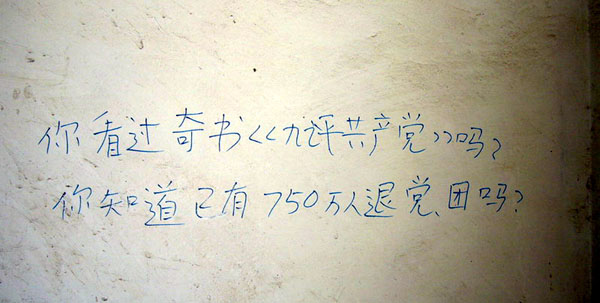 你看过奇书<<九评共产党>>吗?
你知道已有750万人退党、团吗?